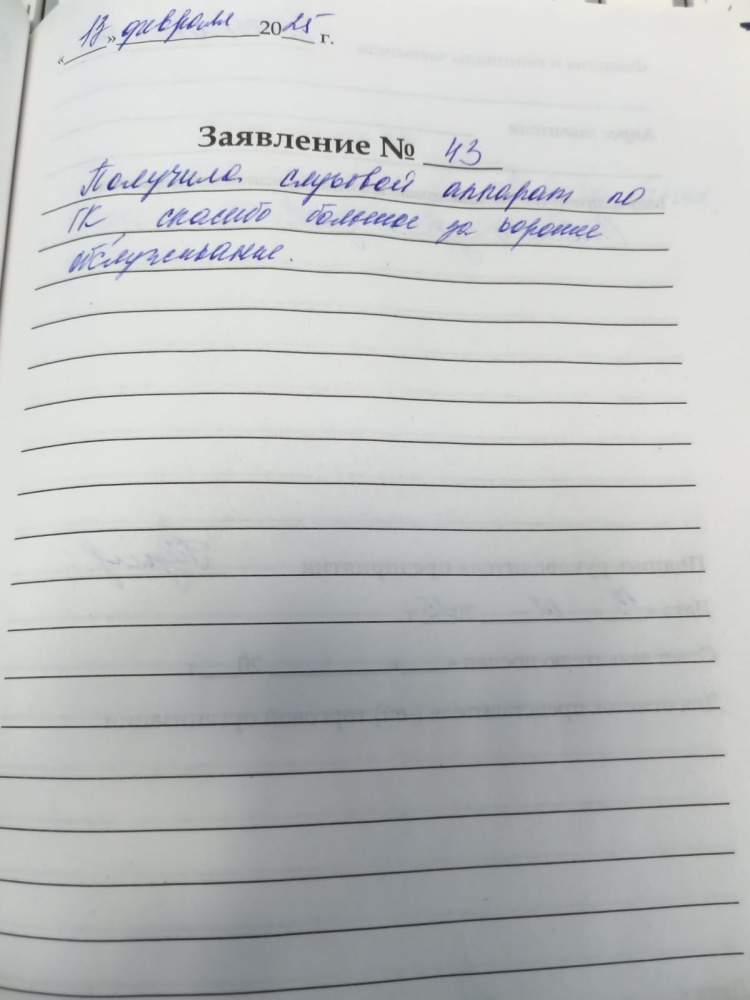 «13» февраля 2025 г.
Заявление № 43
Получила слуховой аппарат по
ГК спасибо большое за хорошие
обслуживание.